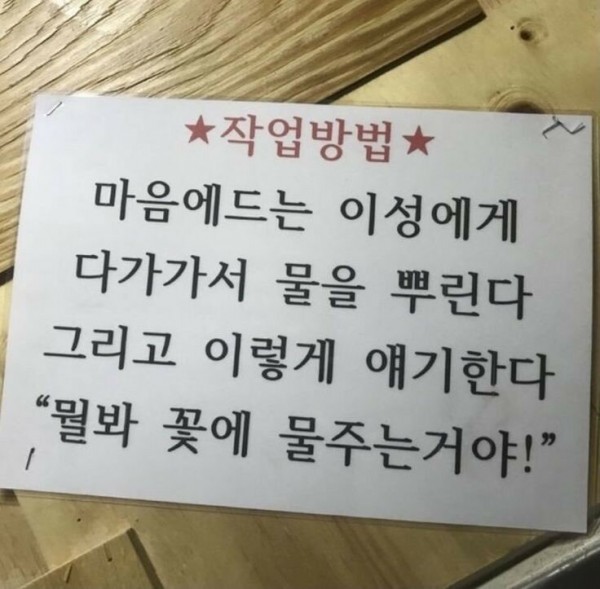 ★작업방법★
마음에드는 이성에게
다가가서 물을 뿌린다
그리고 이렇게 얘기한다
“뭘봐 꽃에 물주는거야!”